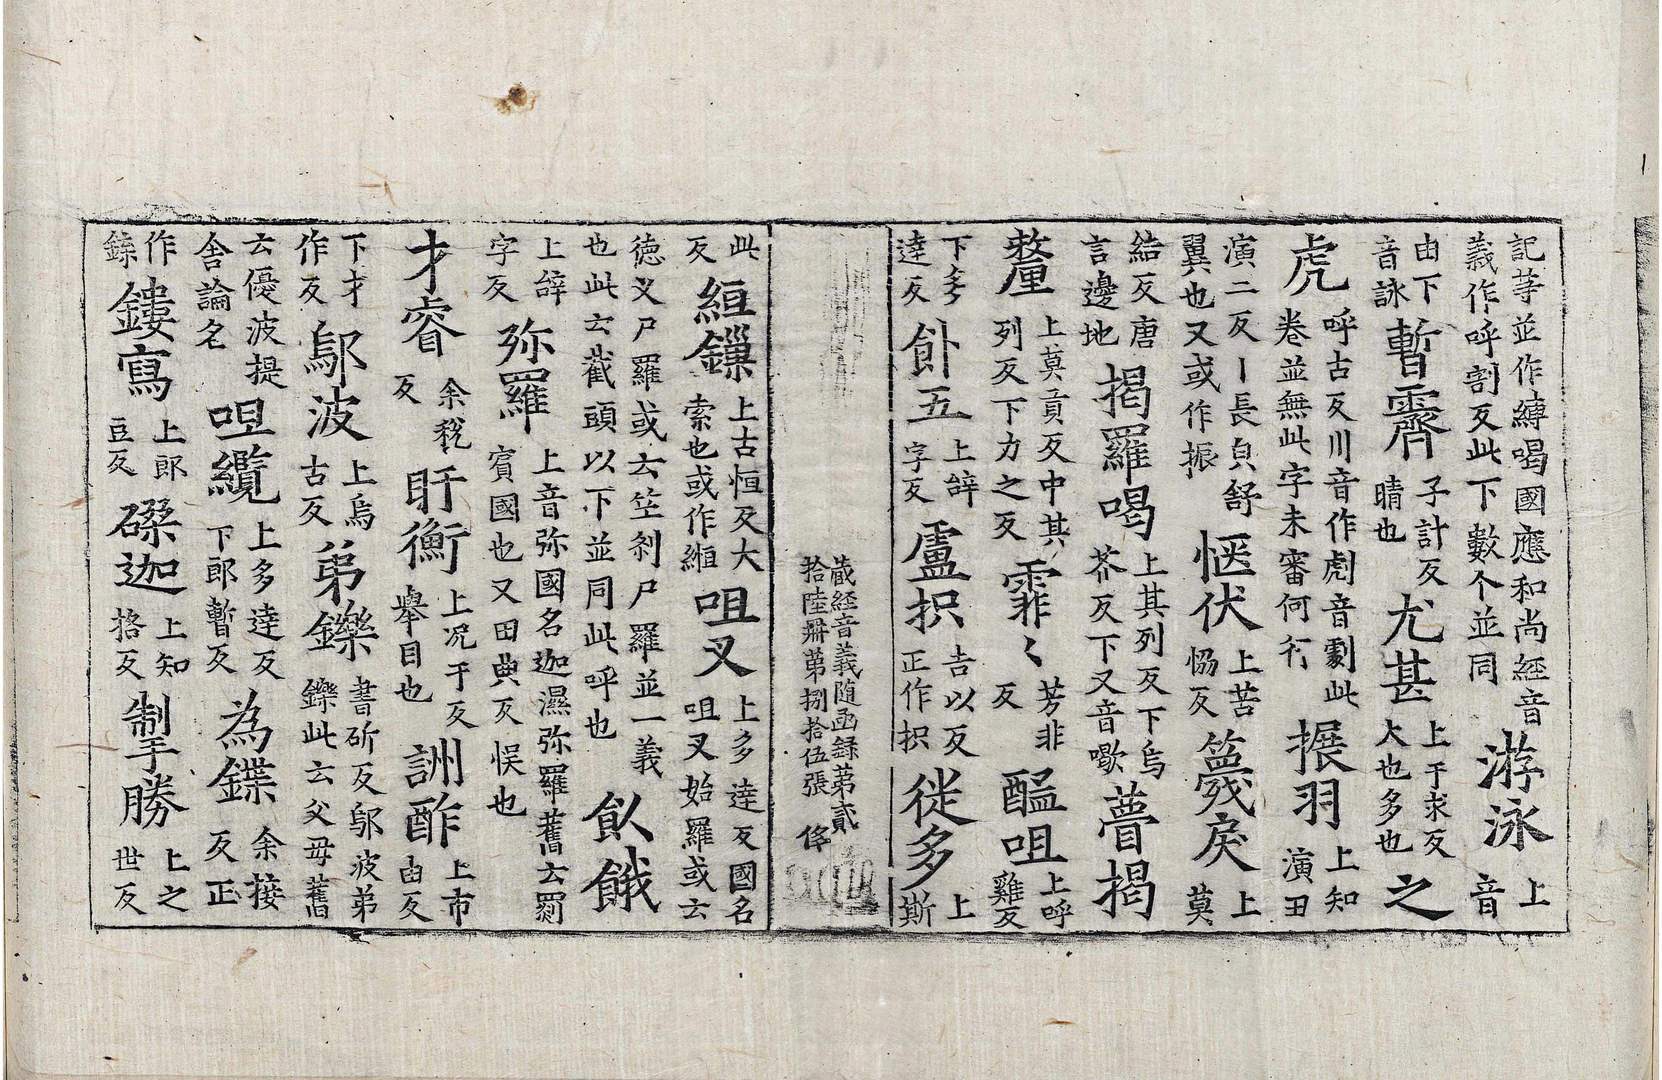 記䓁並作縛喝國應和尚經音義作呼割反此下數个並同 游泳 上音
由下音詠 暫霽 子計反晴也 尤甚 上于求反大也多也 之
虎 呼古反川音作彪音劇此卷並無此字未審何行 搌羽 上知演田
演二反丨長皃舒翼也又或作振 愜伏 上苦恊反 篾戾 上莫
結反唐言邊地 揭羅喝 上其列反下烏芥反下又音歇 瞢揭
釐 上莫貢反中其列反下力之反 霏〻 芳非反 醯咀 上呼雞反
下多達反 飰五 上辝字反 盧抧 吉以反正作抧 徙多 上斯
藏經音義随函録第貳
拾陸冊第捌拾伍張 侈
此反 絙鏁 上古恒反大索也或作縆 咀叉 上多達反國名咀叉始羅或云
德叉尸羅或云笁刹尸羅並一義也此云截頭以下並同此呼也 飤餓
上辝字反 弥羅 上音弥國名迦濕弥羅舊云罽賓國也又田典反悮也
才睿 余稅反 盱衡 上况于反舉目也 詶酢 上市由反
下才作反 鄔波 上烏古反 弟鑠 書斫反鄔波弟鑠此云父母舊
云優波提舍論名 呾纜 上多達反下郎暫反 為鍱 余接反正
作鍱 鏤寫 上郎豆反 磔迦 上知格反 制勝 上之世反